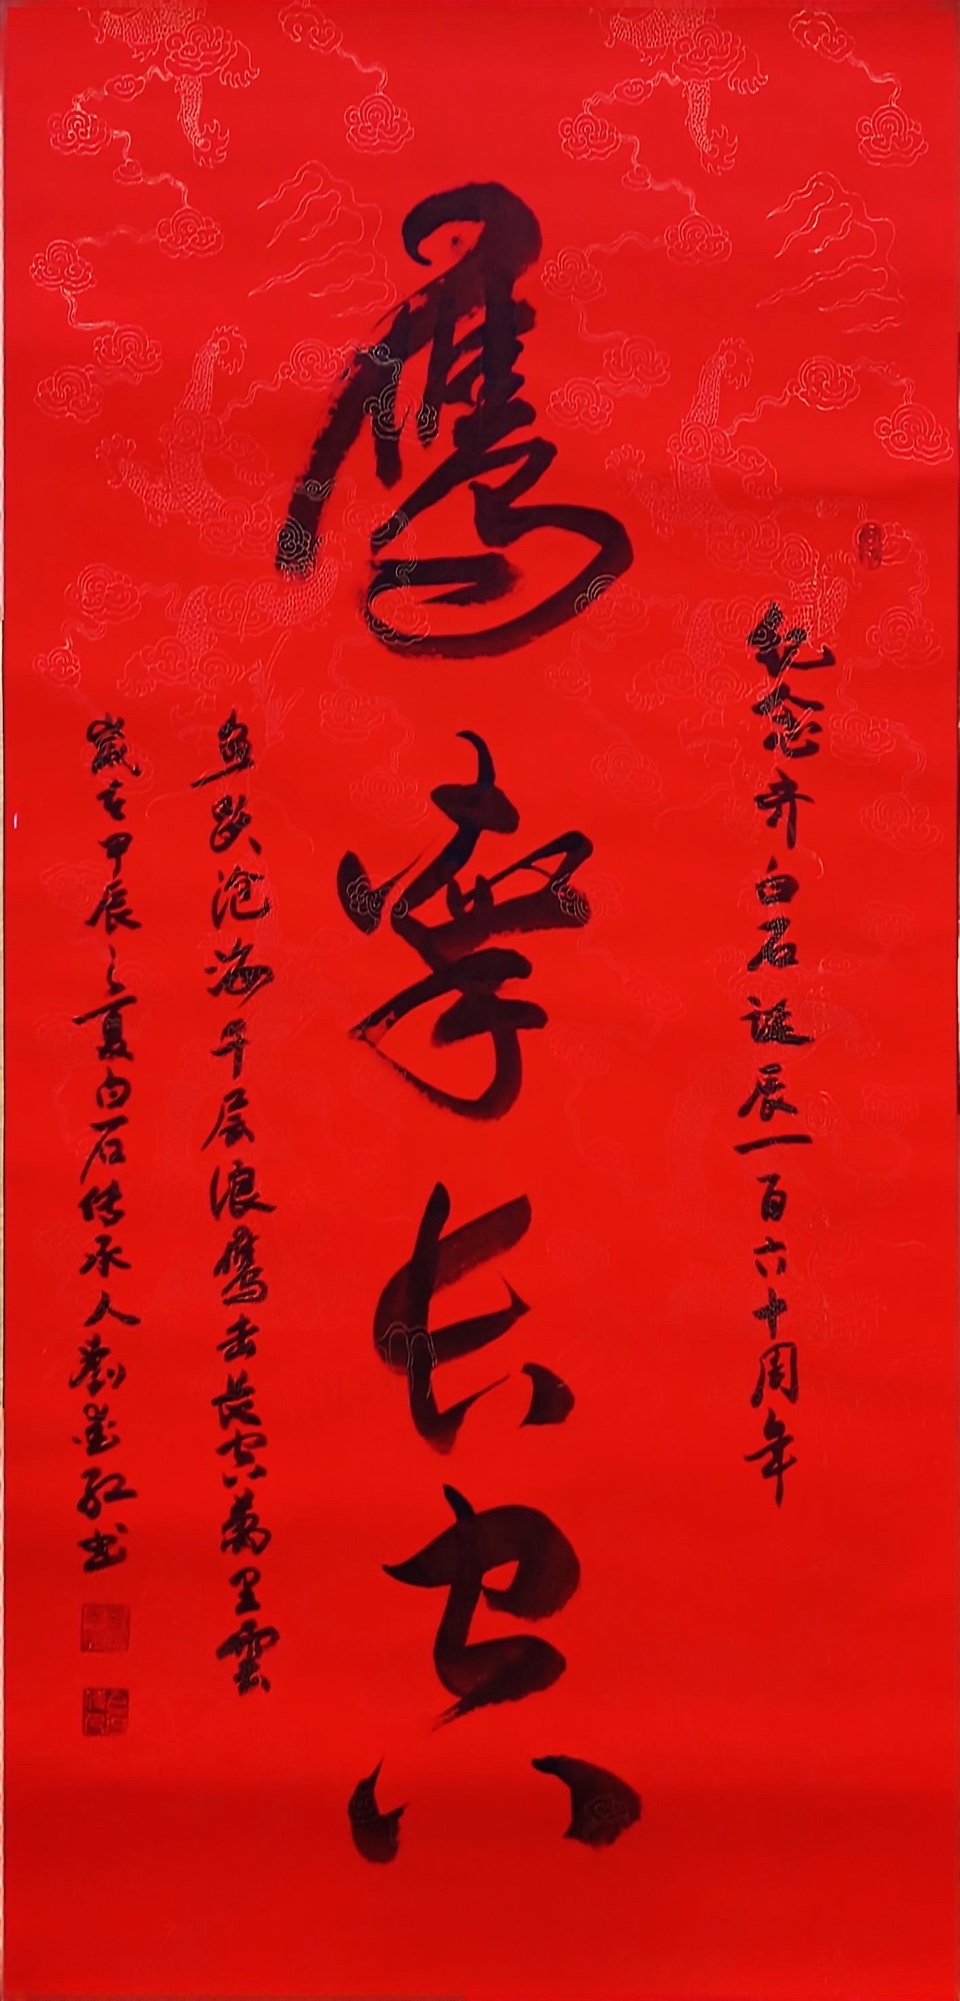 纪念齐白石诞辰一百六十周年
鹰擊长空
鱼跃沧海千层浪鹰击长空萬里雲
歲在甲辰之夏白石传承人劉红书